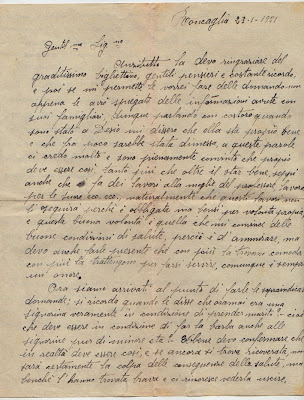 Roncaglia 23-1-1921
Gentil.ma Sig.na
Anzitutto la devo ringraziare del
graditissimo bigliettino, gentili pensieri e costante ricordo,
e poi se mi permette le vorrei fare delle domande, ma
appena le avrò spiegato delle informazioni avute con
suoi famigliari, dunque parlando con costoro quando
sono stato a Desio mi dissero che ella stà proprio bene
e che fra poco sarebbe stata dimessa, a queste parole
ci credo molto e sono pienamente convinto che proprio
deve essere così, tanto più che oltre il star bene, seppi
anche che fa dei favori alla moglie del professore
per le cure ecc. ecc., naturalmente che questi favori non
li eseguirà perchè è obbligata ma bensì per volontà propria,
e questa buona volontà è quella che mi convince delle
buone condizioni di salute, perciò è d'ammirare, ma
devo anche farle presente che con più la trovano comoda
con più la trattengono per farsi servire, comunque è sempre
un onore.
Ora siamo arrivati al punto di farle le sopraindicate
domande; si ricorda quando le disse che oramai era una
signorina veramente in condizione di prender marito? - cioè
che deve essere in condizione di far la barba anche alle
signorine pur di minore età? Ebbene devo confermare che
in realtà deve essere così, e se ancora si trova ricoverata, non
sarà certamente la colpa delle conseguenze della salute, ma
benchè l'hanno trovata brava e ci rincresce vederla uscire,